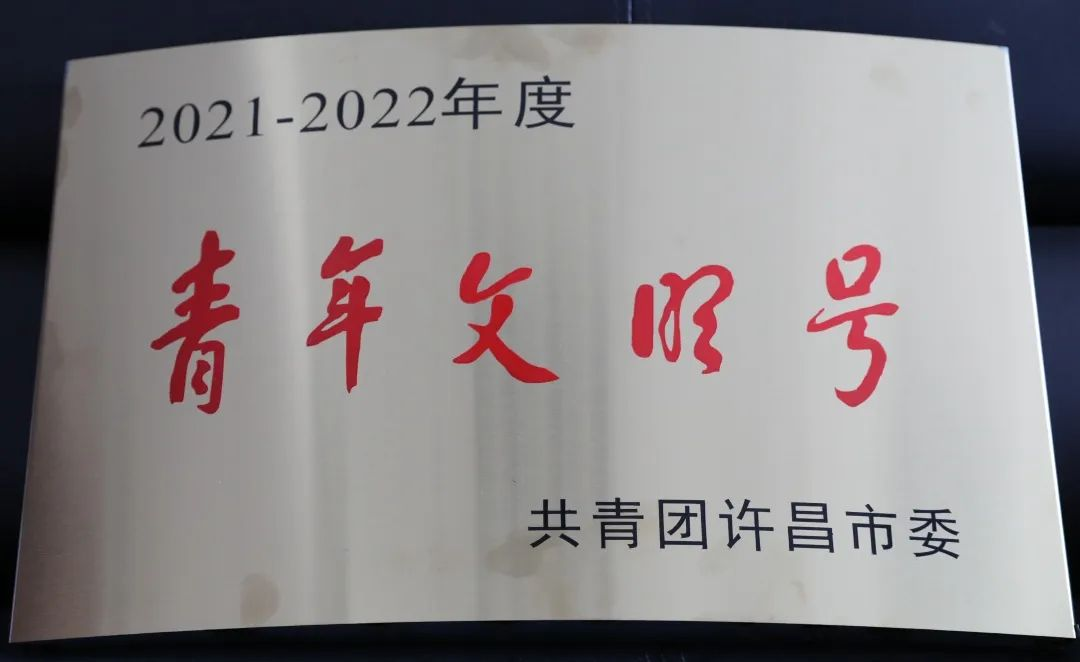 2021-2022年度
青年文明号
共青团许昌市委